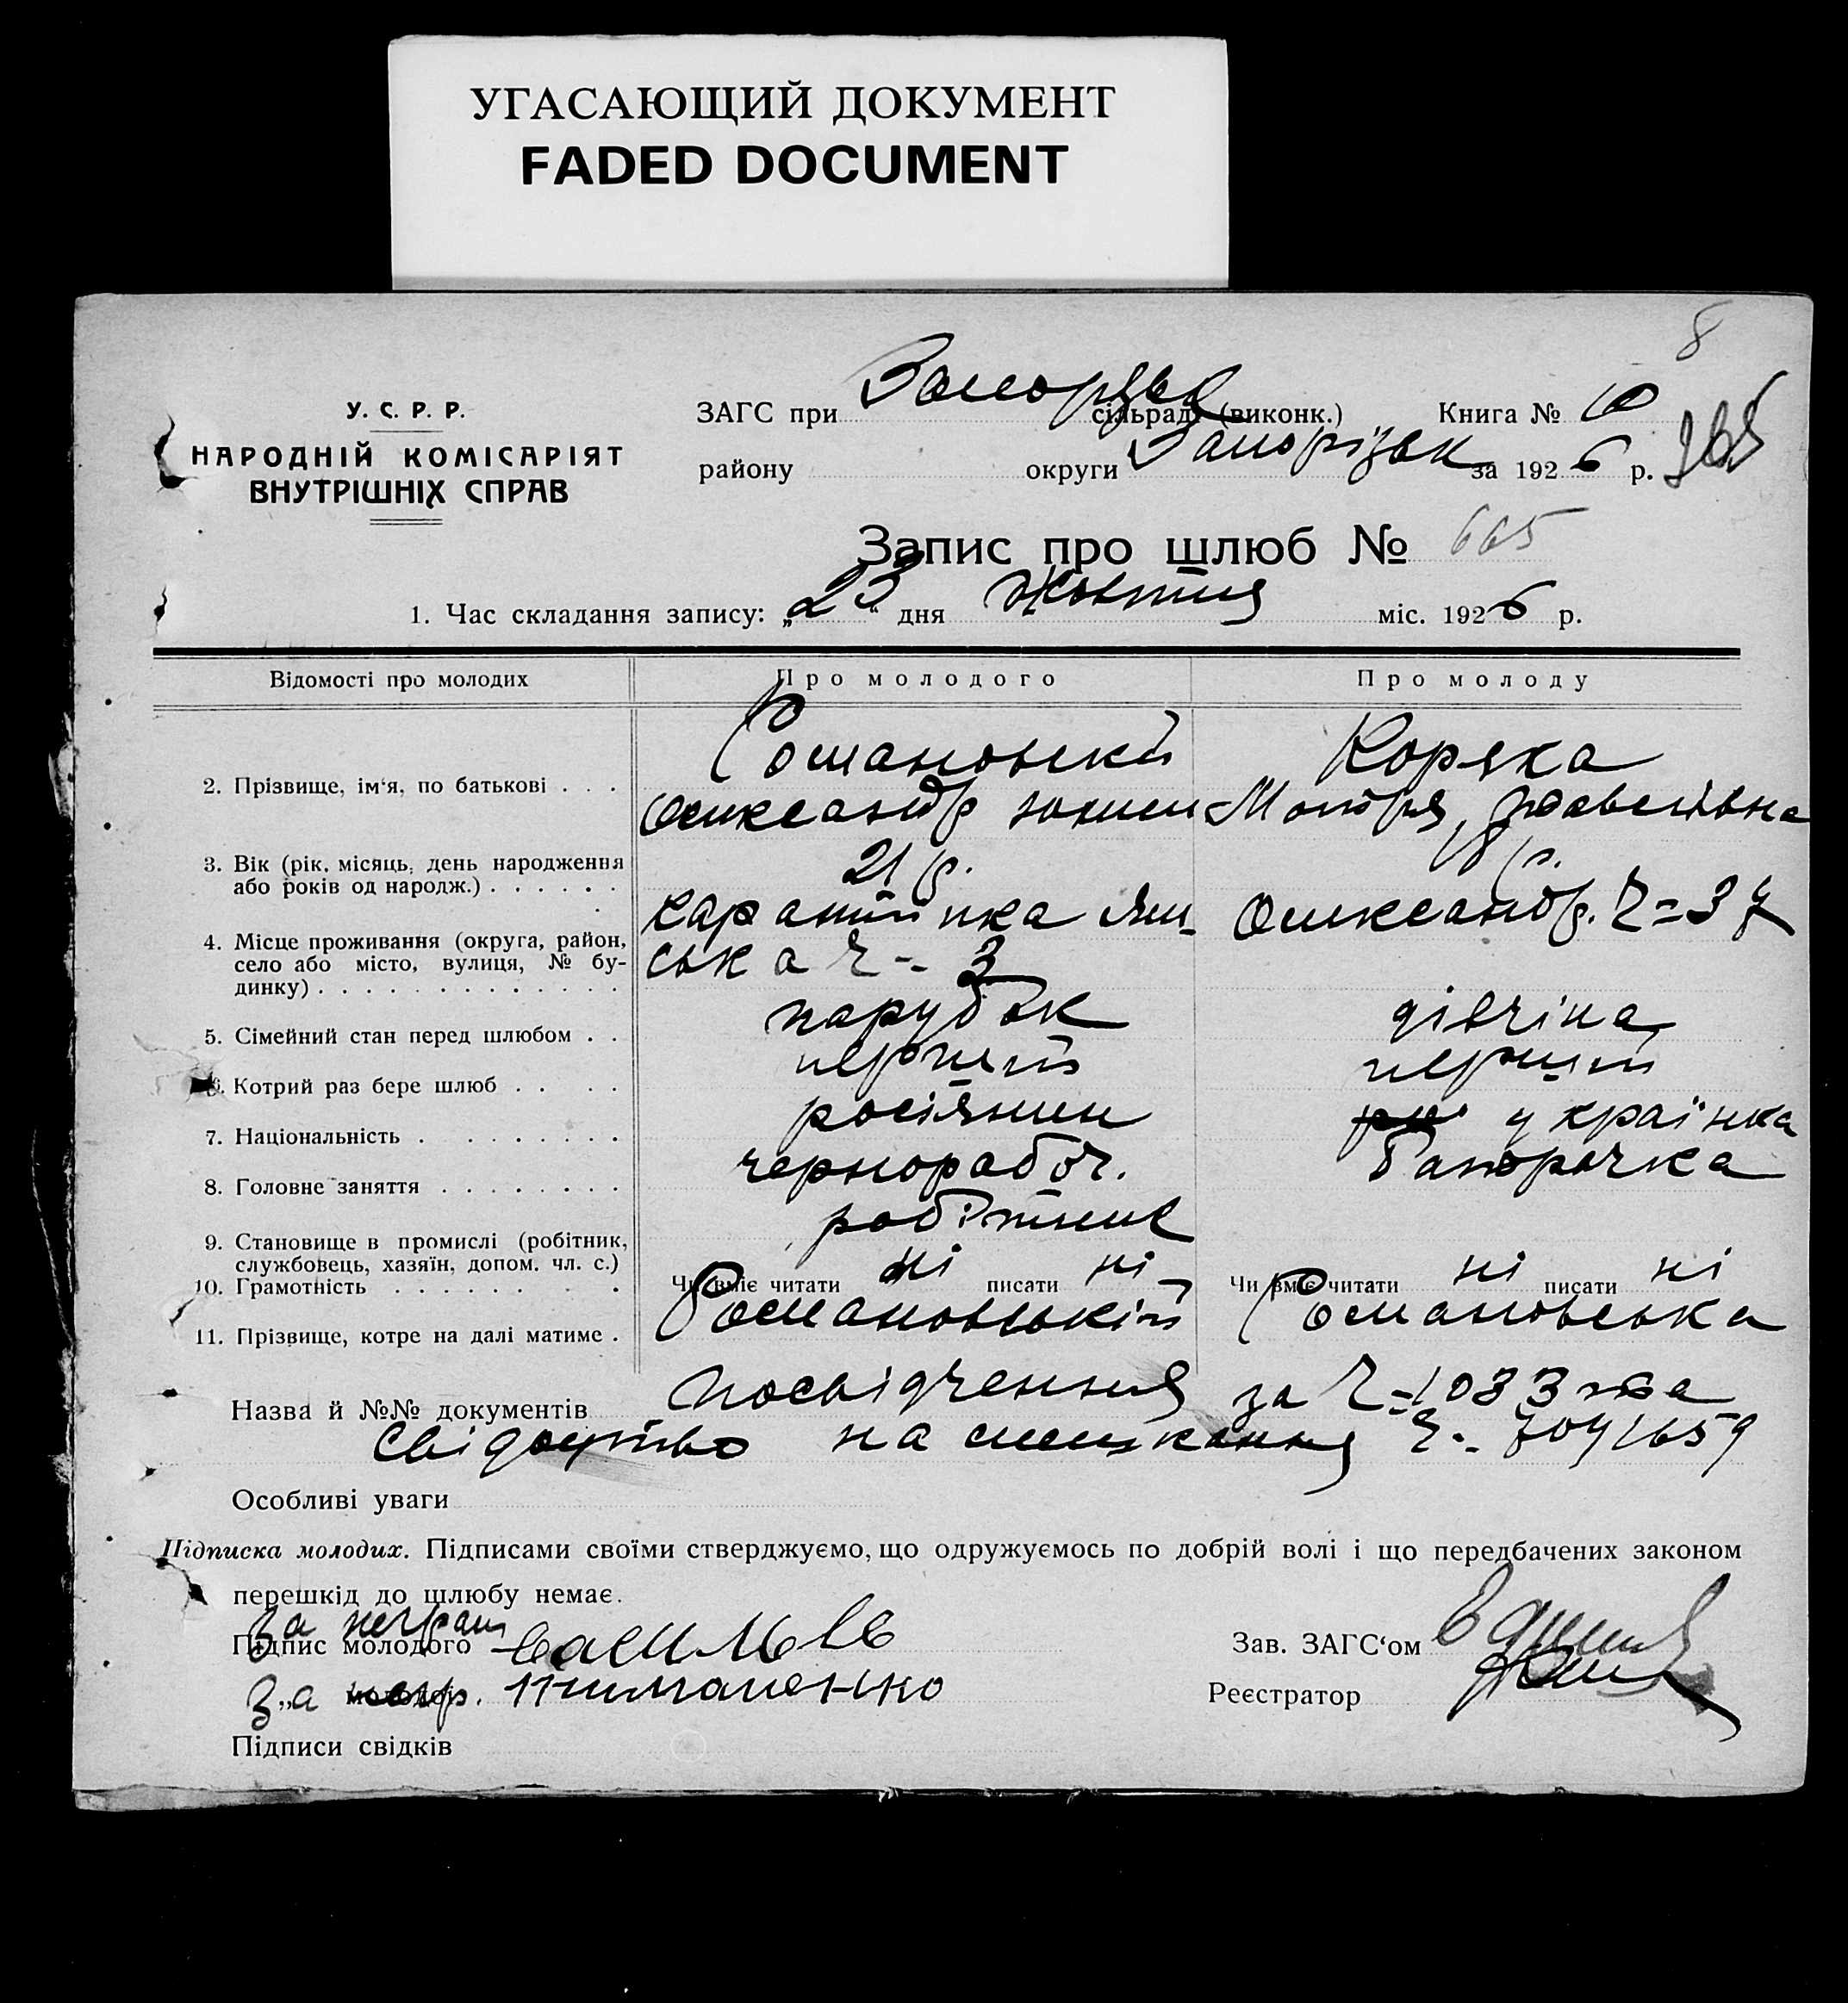 УГАСАЮЩИЙ ДОКУМЕНТ
FADED DOCUMENT
8
У. С. Р. Р.
НАРОДНІЙ КОМІСАРІЯТ
ВНУТРІШНІХ СПРАВ
ЗАГС при сільраді (виконк.) Книга № 10
району округи Запорізьк за 1926 р.
Запис про шлюб № 665
1. Час складання запису: „23“ дня Жовтня міс. 1926 р.
Відомості про молодих
Про молодого
Про молоду
2. Прізвище, ім‘я, по батькові . . .
Романовский
Олександр
Коряка
Мотря Павлівна
3. Вік (рік, місяць, день народження
або років од народж.) . . . . . .
21 р.
18 р.
4. Місце проживання (округа, район,
село або місто, вулиця, № бу-
динку) . . . . . . . . . . . . .
ська ч = 3
Олександр. ч = 37
5. Сімейний стан перед шлюбом . .
парубок
дівчіна
6. Котрий раз бере шлюб . . . .
перший
перший
7. Національність . . . . . . . .
росіянин
українка
8. Головне заняття . . . . . . . .
чернорабоч.
9. Становище в промислі (робітник,
службовець, хазяїн, допом. чл. с.)
робітник
10. Грамотність . . . . . . . .
Чи вміє читати ні писати ні
Чи вміє читати ні писати ні
11. Прізвище, котре на далі матиме .
Романовський
Романовська
Назва й №№ документів посвідчення за ч = 1033 та
свідоцтво на мешкання ч =
Особливі уваги
Підписка молодих. Підписами своїми стверджуємо, що одружуємось по добрій волі і що передбачених законом
перешкід до шлюбу немає.
За неграм
Підпис молодого Васильев
За негр.
Зав. ЗАГС‘ом
Реєстратор
Підписи свідків